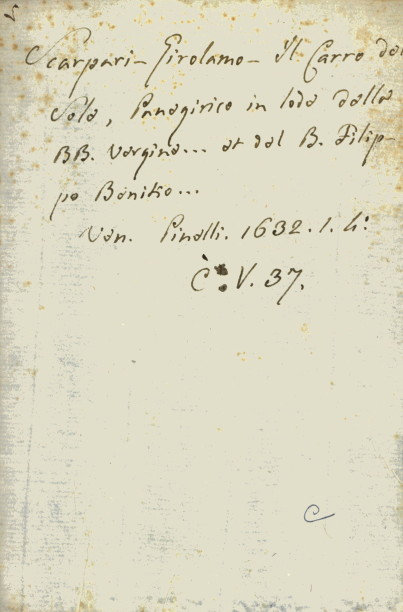 Scarpari - Girolamo - il Carro del
Sole, Panegirico in lode della
BB. Vergine... et del B. Filip-
po Benitio...
Ven. Pinelli. 1632. 1. 4:
C. V. 37.
C